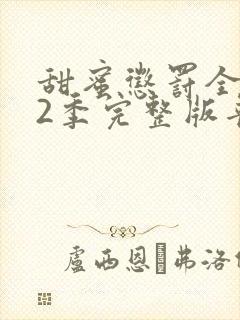 甜蜜懲罰全
2季完整版
盧西恩·弗洛